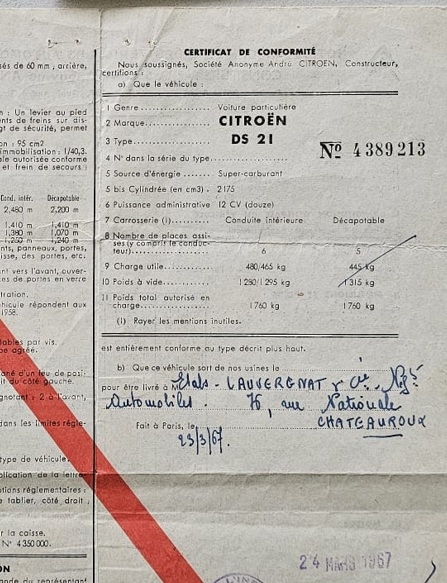 CERTIFICAT DE CONFORMITÉ
Nous soussignés, Société Anonyme André CITROEN, Constructeur,
certifions :
a) Que le véhicule :
1 Genre Voiture particulière
2 Marque CITROËN
3 Type DS 21
Nº 4389213
4 Nº dans la série du type
5 Source d'énergie Super-carburant
5 bis Cylindrée (en cm3) . 2175
6 Puissance administrative 12 CV (douze)
7 Carrosserie (1) Conduite intérieure Décapotable
8 Nombre de places assi-
ses (y compris le conduc-
teur) 6 5
9 Charge utile 480/465 kg 445 kg
10 Poids à vide 1280/1295 kg 1315 kg
11 Poids total autorisé en
charge 1760 kg 1760 kg
(1) Rayer les mentions inutiles.
est entièrement conforme au type décrit plus haut.
b) Que ce véhicule sort de nos usines le
pour être livré à M Etabs - LAUVERGNAT & Cie - Ngts
Automobiles. 76, rue Nationale
CHATEAUROUX
Fait à Paris, le
23/3/67.
24 MARS 1967
sés de 60 mm, arrière,
: Un levier au pied
ents de freins sur dis-
gt de sécurité, permet
on : 95 cm2
immobilisation : 1/40,3.
ale autorisée conforme
et frein de secours)
Cond. intér. Décapotable
2,480 m 2,200 m
1,410 m 1,410 m
1,380 m 1,070 m
1,250 m 1,240 m
nts, panneaux, portes,
isse, des portes, etc.
ant vers l'avant, ouver-
es de portes en verre
tration.
éhicule répondent aux
1958.
tables par vis.
pe agréée.
ané d'un feu de posi-
it du côté gauche.
gnotant : 2 à l'avant,
dans les limites régle-
type de véhicule.
plication de la lettre
utions réglementaires :
e tablier, côté droit,
r la caisse.
Nº 4350000.
ON
ande du représentant